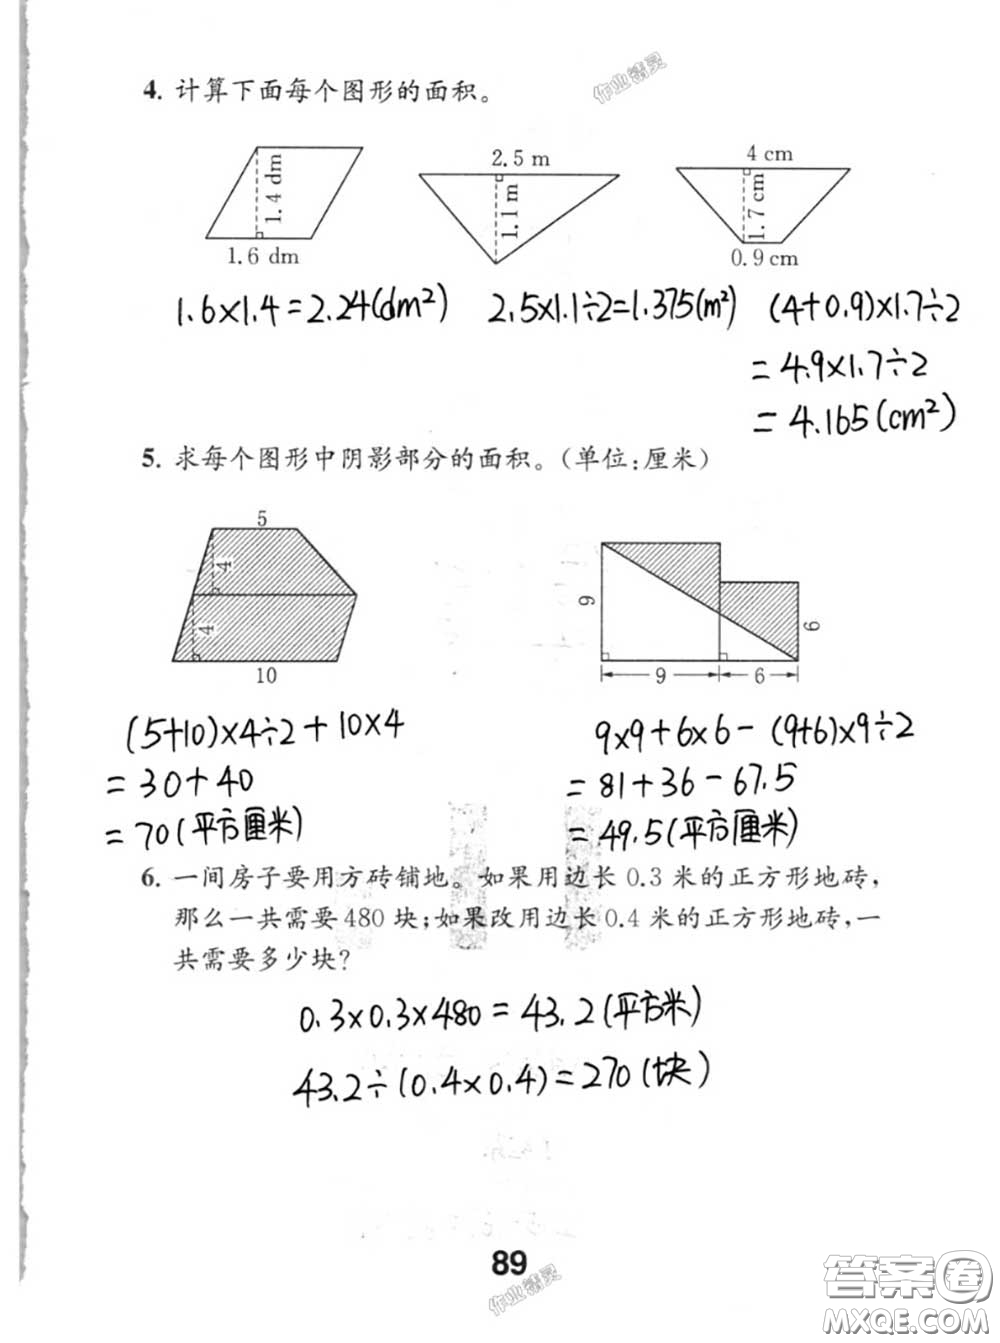 4. 计算下面每个图形的面积。
作业精灵
1.4 dm
1.6 dm
2.5 m
1.1 m
4 cm
1.7 cm
0.9 cm
1.6×1.4=2.24(dm²)
2.5×1.1÷2=1.375(m²)
(4+0.9)×1.7÷2
=4.9×1.7÷2
=4.165(cm²)
5. 求每个图形中阴影部分的面积。(单位:厘米)
5
4
4
10
9
9
6
6
(5+10)×4÷2+10×4
=30+40
=70(平方厘米)
9×9+6×6-(9+6)×9÷2
=81+36-67.5
=49.5(平方厘米)
6. 一间房子要用方砖铺地。如果用边长 0.3 米的正方形地砖,
那么一共需要 480 块;如果改用边长 0.4 米的正方形地砖,一
共需要多少块?
0.3×0.3×480=43.2(平方米)
43.2÷(0.4×0.4)=270(块)
89
作业精灵
答案圈
MXQE.COM